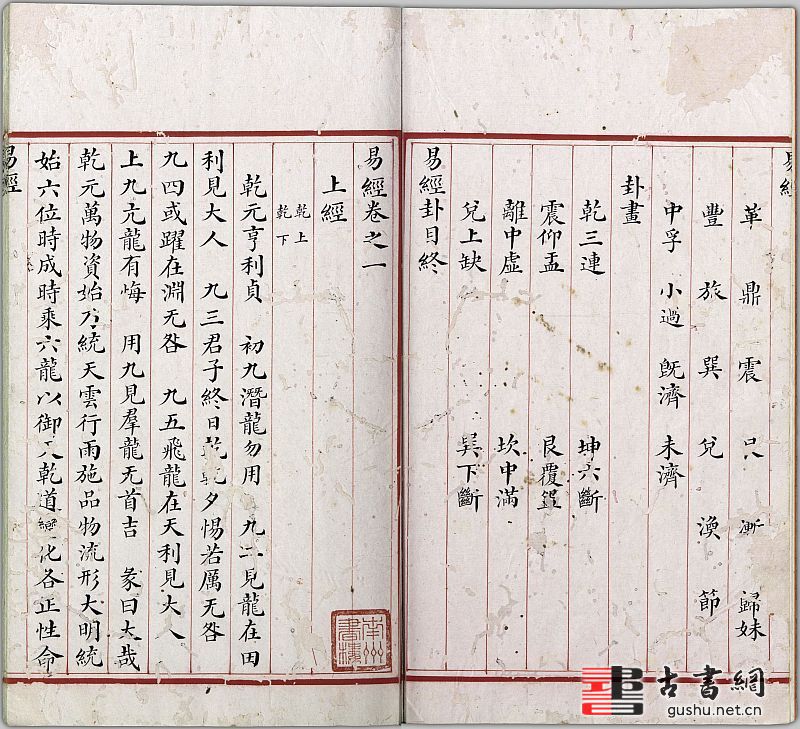 易經
革 鼎 震 漸 歸妹
豐 旅 巽 兌 渙 節
中孚 小過 旣濟 未濟
卦畫
乾三連 坤六斷
震仰盂 艮覆盌
離中虛 坎中滿
兌上缺 巽下斷
易經卦目終
易經卷之一
上經
乾上
乾下
乾元亨利貞 初九潛龍勿用 九二見龍在田
利見大人 九三君子終日乾乾夕惕若厲无咎
九四或躍在淵无咎 九五飛龍在天利見大人
上九亢龍有悔 用九見羣龍无首吉 彖曰大哉
乾元萬物資始乃統天雲行雨施品物流形大明終
始六位時成時乘六龍以御天乾道變化各正性命
易經
南州書樓
古書網
gushu.net.cn